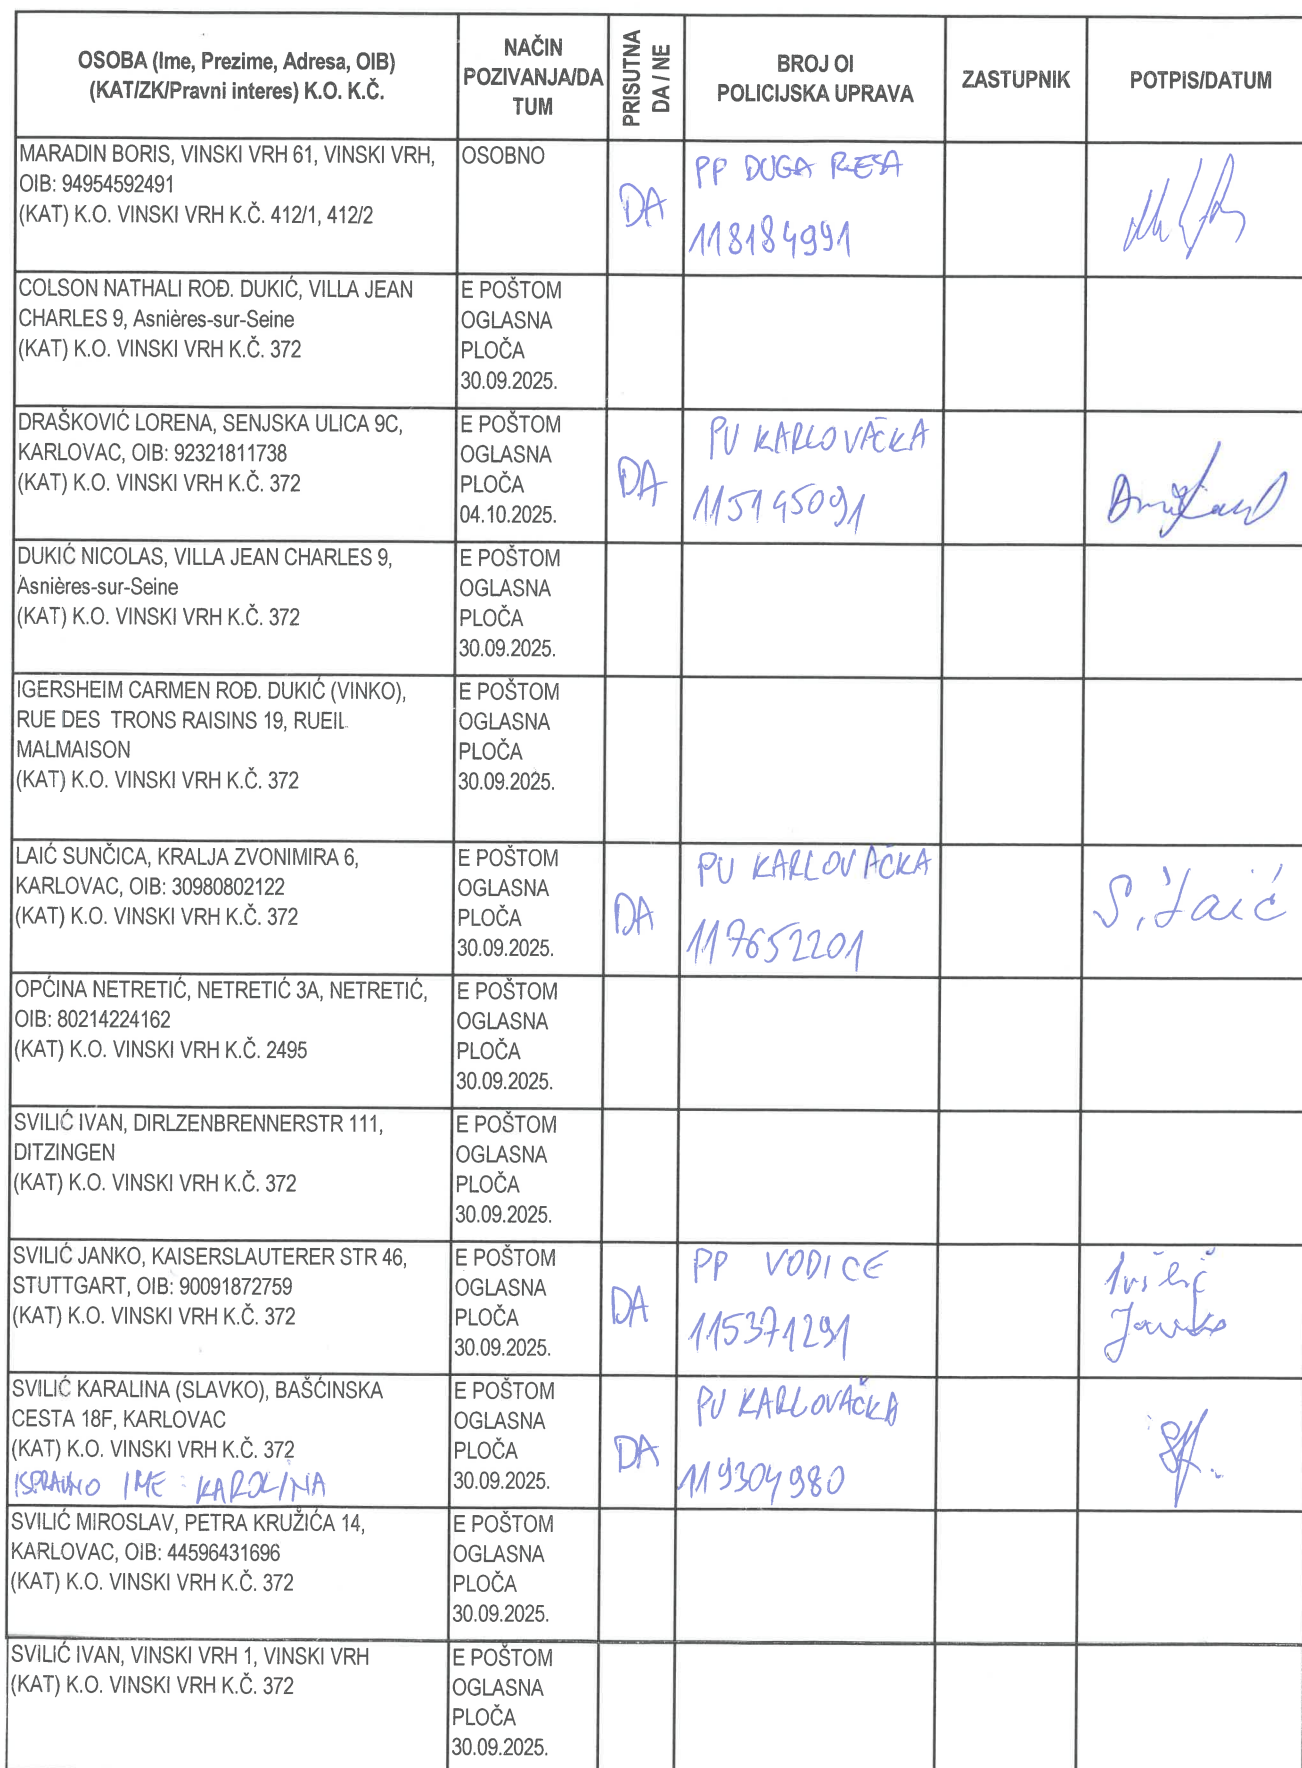 OSOBA (Ime, Prezime, Adresa, OIB)
(KAT/ZK/Pravni interes) K.O. K.Č.
NAČIN
POZIVANJA/DA
TUM
PRISUTNA
DA / NE
BROJ OI
POLICIJSKA UPRAVA
ZASTUPNIK
POTPIS/DATUM
MARADIN BORIS, VINSKI VRH 61, VINSKI VRH,
OIB: 94954592491
(KAT) K.O. VINSKI VRH K.Č. 412/1, 412/2
OSOBNO
DA
PP DUGA RESA
118184991
COLSON NATHALI ROĐ. DUKIĆ, VILLA JEAN
CHARLES 9, Asnières-sur-Seine
(KAT) K.O. VINSKI VRH K.Č. 372
E POŠTOM
OGLASNA
PLOČA
30.09.2025.
DRAŠKOVIĆ LORENA, SENJSKA ULICA 9C,
KARLOVAC, OIB: 92321811738
(KAT) K.O. VINSKI VRH K.Č. 372
E POŠTOM
OGLASNA
PLOČA
04.10.2025.
DA
PU KARLOVAČKA
115145091
DUKIĆ NICOLAS, VILLA JEAN CHARLES 9,
Asnières-sur-Seine
(KAT) K.O. VINSKI VRH K.Č. 372
E POŠTOM
OGLASNA
PLOČA
30.09.2025.
IGERSHEIM CARMEN ROĐ. DUKIĆ (VINKO),
RUE DES TRONS RAISINS 19, RUEIL
MALMAISON
(KAT) K.O. VINSKI VRH K.Č. 372
E POŠTOM
OGLASNA
PLOČA
30.09.2025.
LAIĆ SUNČICA, KRALJA ZVONIMIRA 6,
KARLOVAC, OIB: 30980802122
(KAT) K.O. VINSKI VRH K.Č. 372
E POŠTOM
OGLASNA
PLOČA
30.09.2025.
DA
PU KARLOVAČKA
117652201
S. Laić
OPĆINA NETRETIĆ, NETRETIĆ 3A, NETRETIĆ,
OIB: 80214224162
(KAT) K.O. VINSKI VRH K.Č. 2495
E POŠTOM
OGLASNA
PLOČA
30.09.2025.
SVILIĆ IVAN, DIRLZENBRENNERSTR 111,
DITZINGEN
(KAT) K.O. VINSKI VRH K.Č. 372
E POŠTOM
OGLASNA
PLOČA
30.09.2025.
SVILIĆ JANKO, KAISERSLAUTERER STR 46,
STUTTGART, OIB: 90091872759
(KAT) K.O. VINSKI VRH K.Č. 372
E POŠTOM
OGLASNA
PLOČA
30.09.2025.
DA
PP VODICE
115371291
Janko
SVILIĆ KARALINA (SLAVKO), BAŠĆINSKA
CESTA 18F, KARLOVAC
(KAT) K.O. VINSKI VRH K.Č. 372
ISPRAVNO IME: KAROLINA
E POŠTOM
OGLASNA
PLOČA
30.09.2025.
DA
PU KARLOVAČKA
119304980
SVILIĆ MIROSLAV, PETRA KRUŽIĆA 14,
KARLOVAC, OIB: 44596431696
(KAT) K.O. VINSKI VRH K.Č. 372
E POŠTOM
OGLASNA
PLOČA
30.09.2025.
SVILIĆ IVAN, VINSKI VRH 1, VINSKI VRH
(KAT) K.O. VINSKI VRH K.Č. 372
E POŠTOM
OGLASNA
PLOČA
30.09.2025.